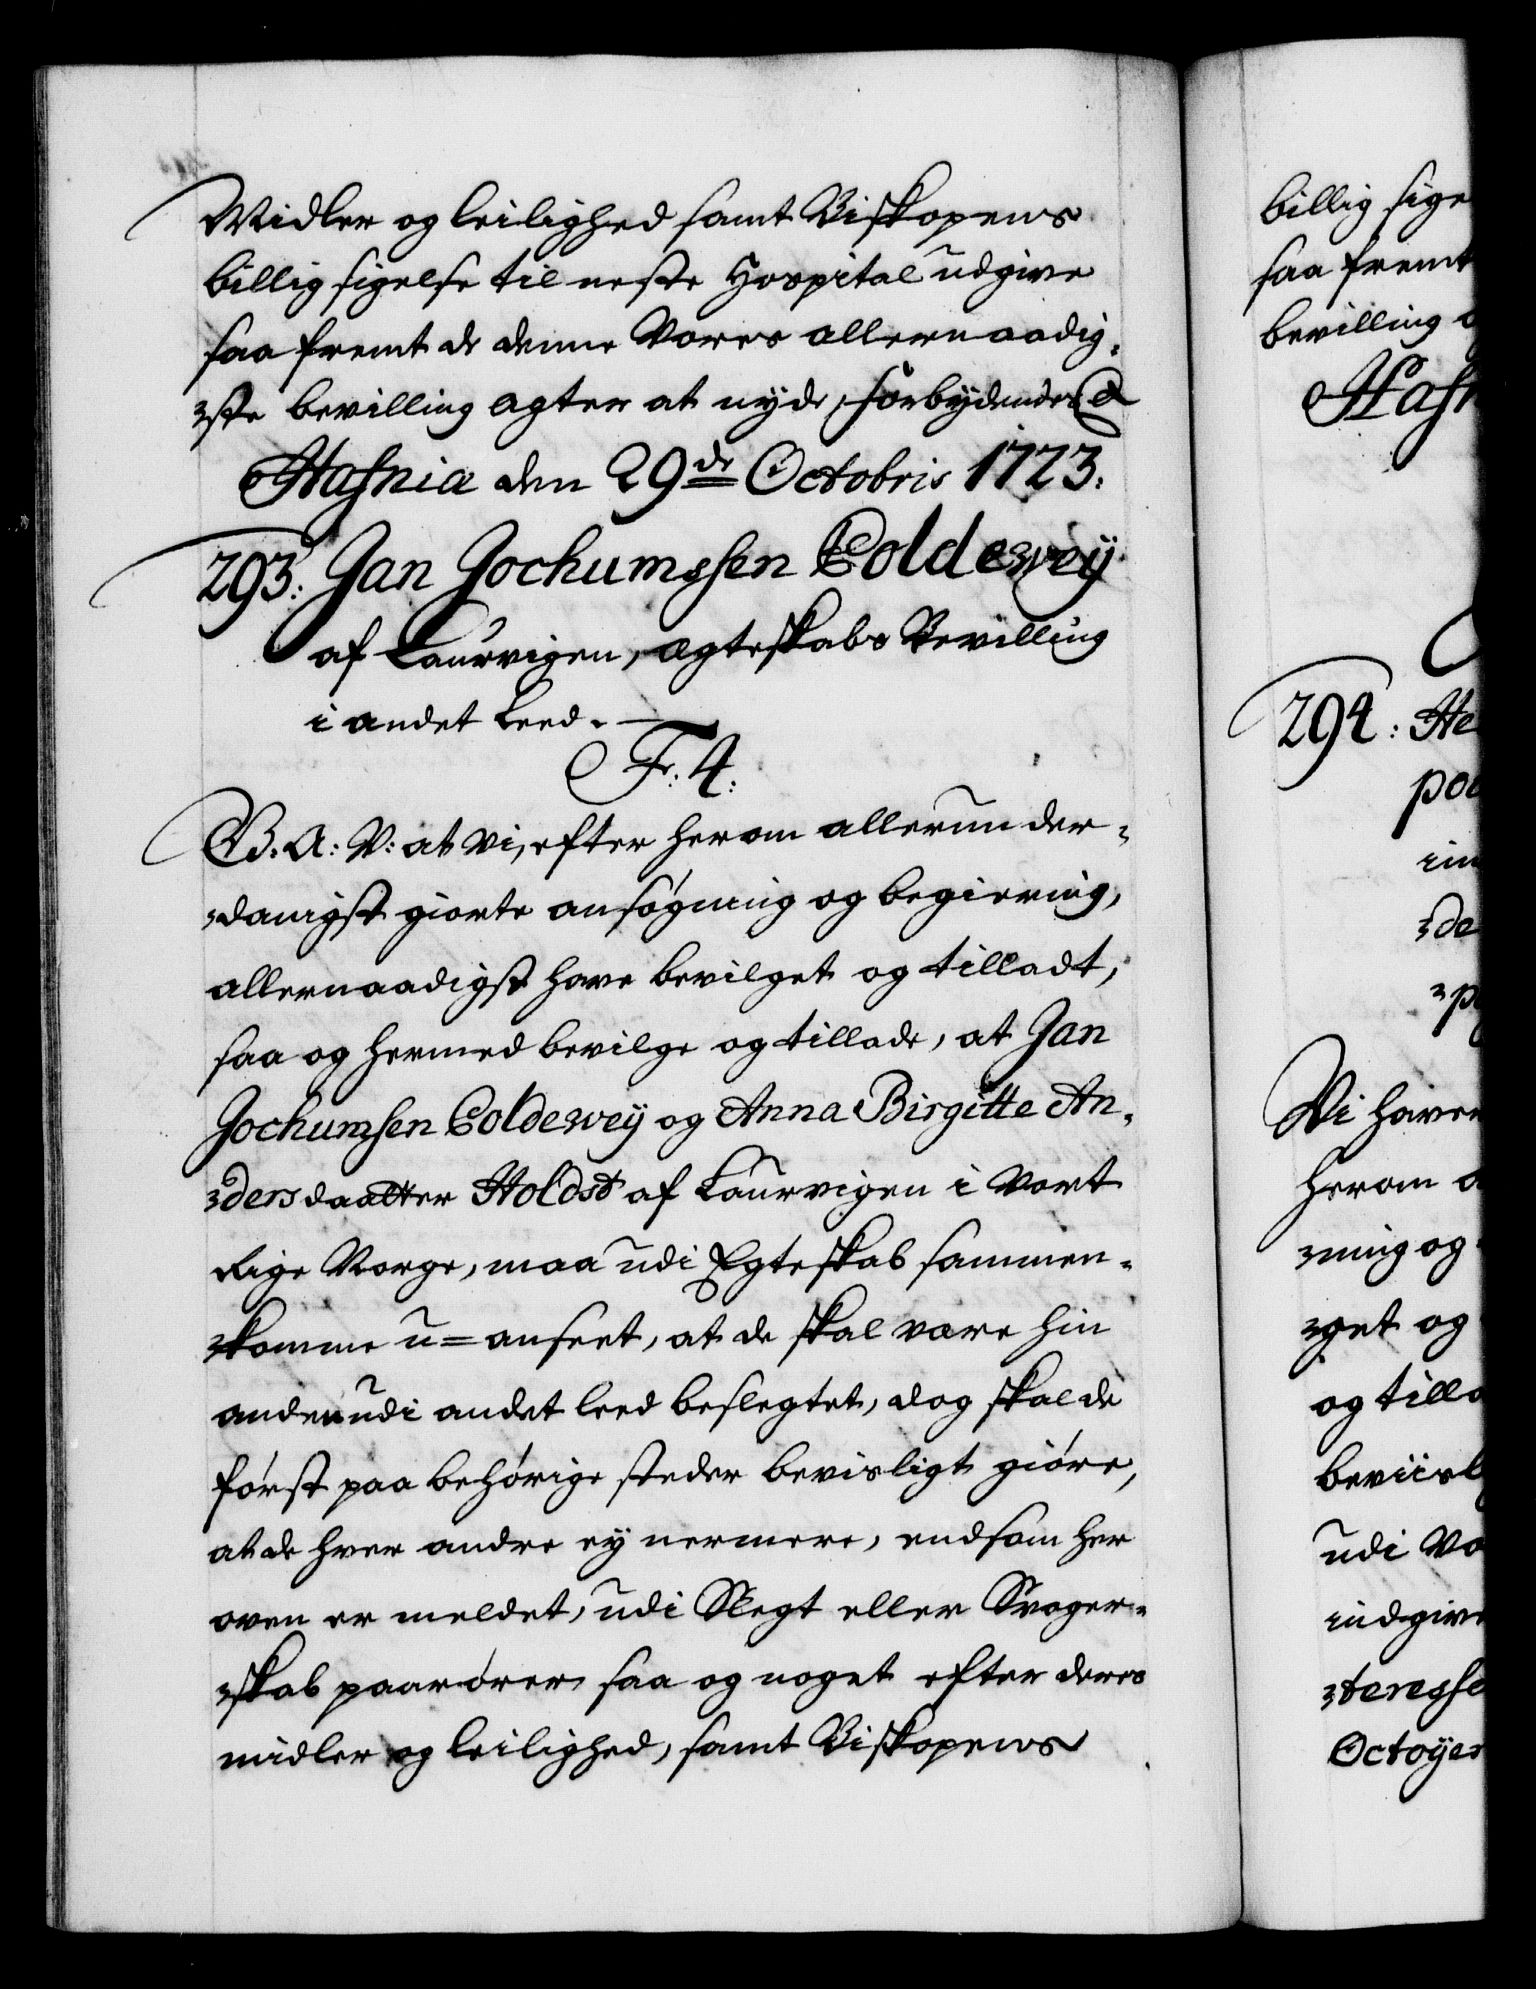 Midler og leilighed samt Biskopens
billig sigelse til neste Hospital udgive
saa fremt de denne Vores allernaadig-
ste bevilling agter at nyde, forbydendes &
Hafnia den 29de Octobris 1723.
293. Jan Jochumssen Coldewey
af Laurvigen, ægteskabs Bevilling
i andet Leed.
F. 4.
G. A: V: at vi, efter herom allerunder-
danigst giorte ansøgning og begiering,
allernaadigst have bevilget og tilladt,
saa og hermed bevilge og tillade, at Jan
Jochumsen Coldewey og Anna Birgitte An-
dersdaatter Holdst af Laurvigen i Vort
Rige Norge, maa udi Egteskab sammen-
komme u-anseet, at de skal være hin
anden udi andet leed beslegtet, dog skal de
først paa behørige steder bevisligt giøre,
at de hver andre ey nermere, end som her
oven er meldet, udi Slegt eller Svoger-
skab paarører, saa og noget efter deres
midler og leilighed, samt Biskopens
billig sige
saa fremt
bevilling
Hafn
294: He
Vi haver
herom a
ning og
get og
og tilla
beviisl
udi Vo
indgive
teresse
Octoyer